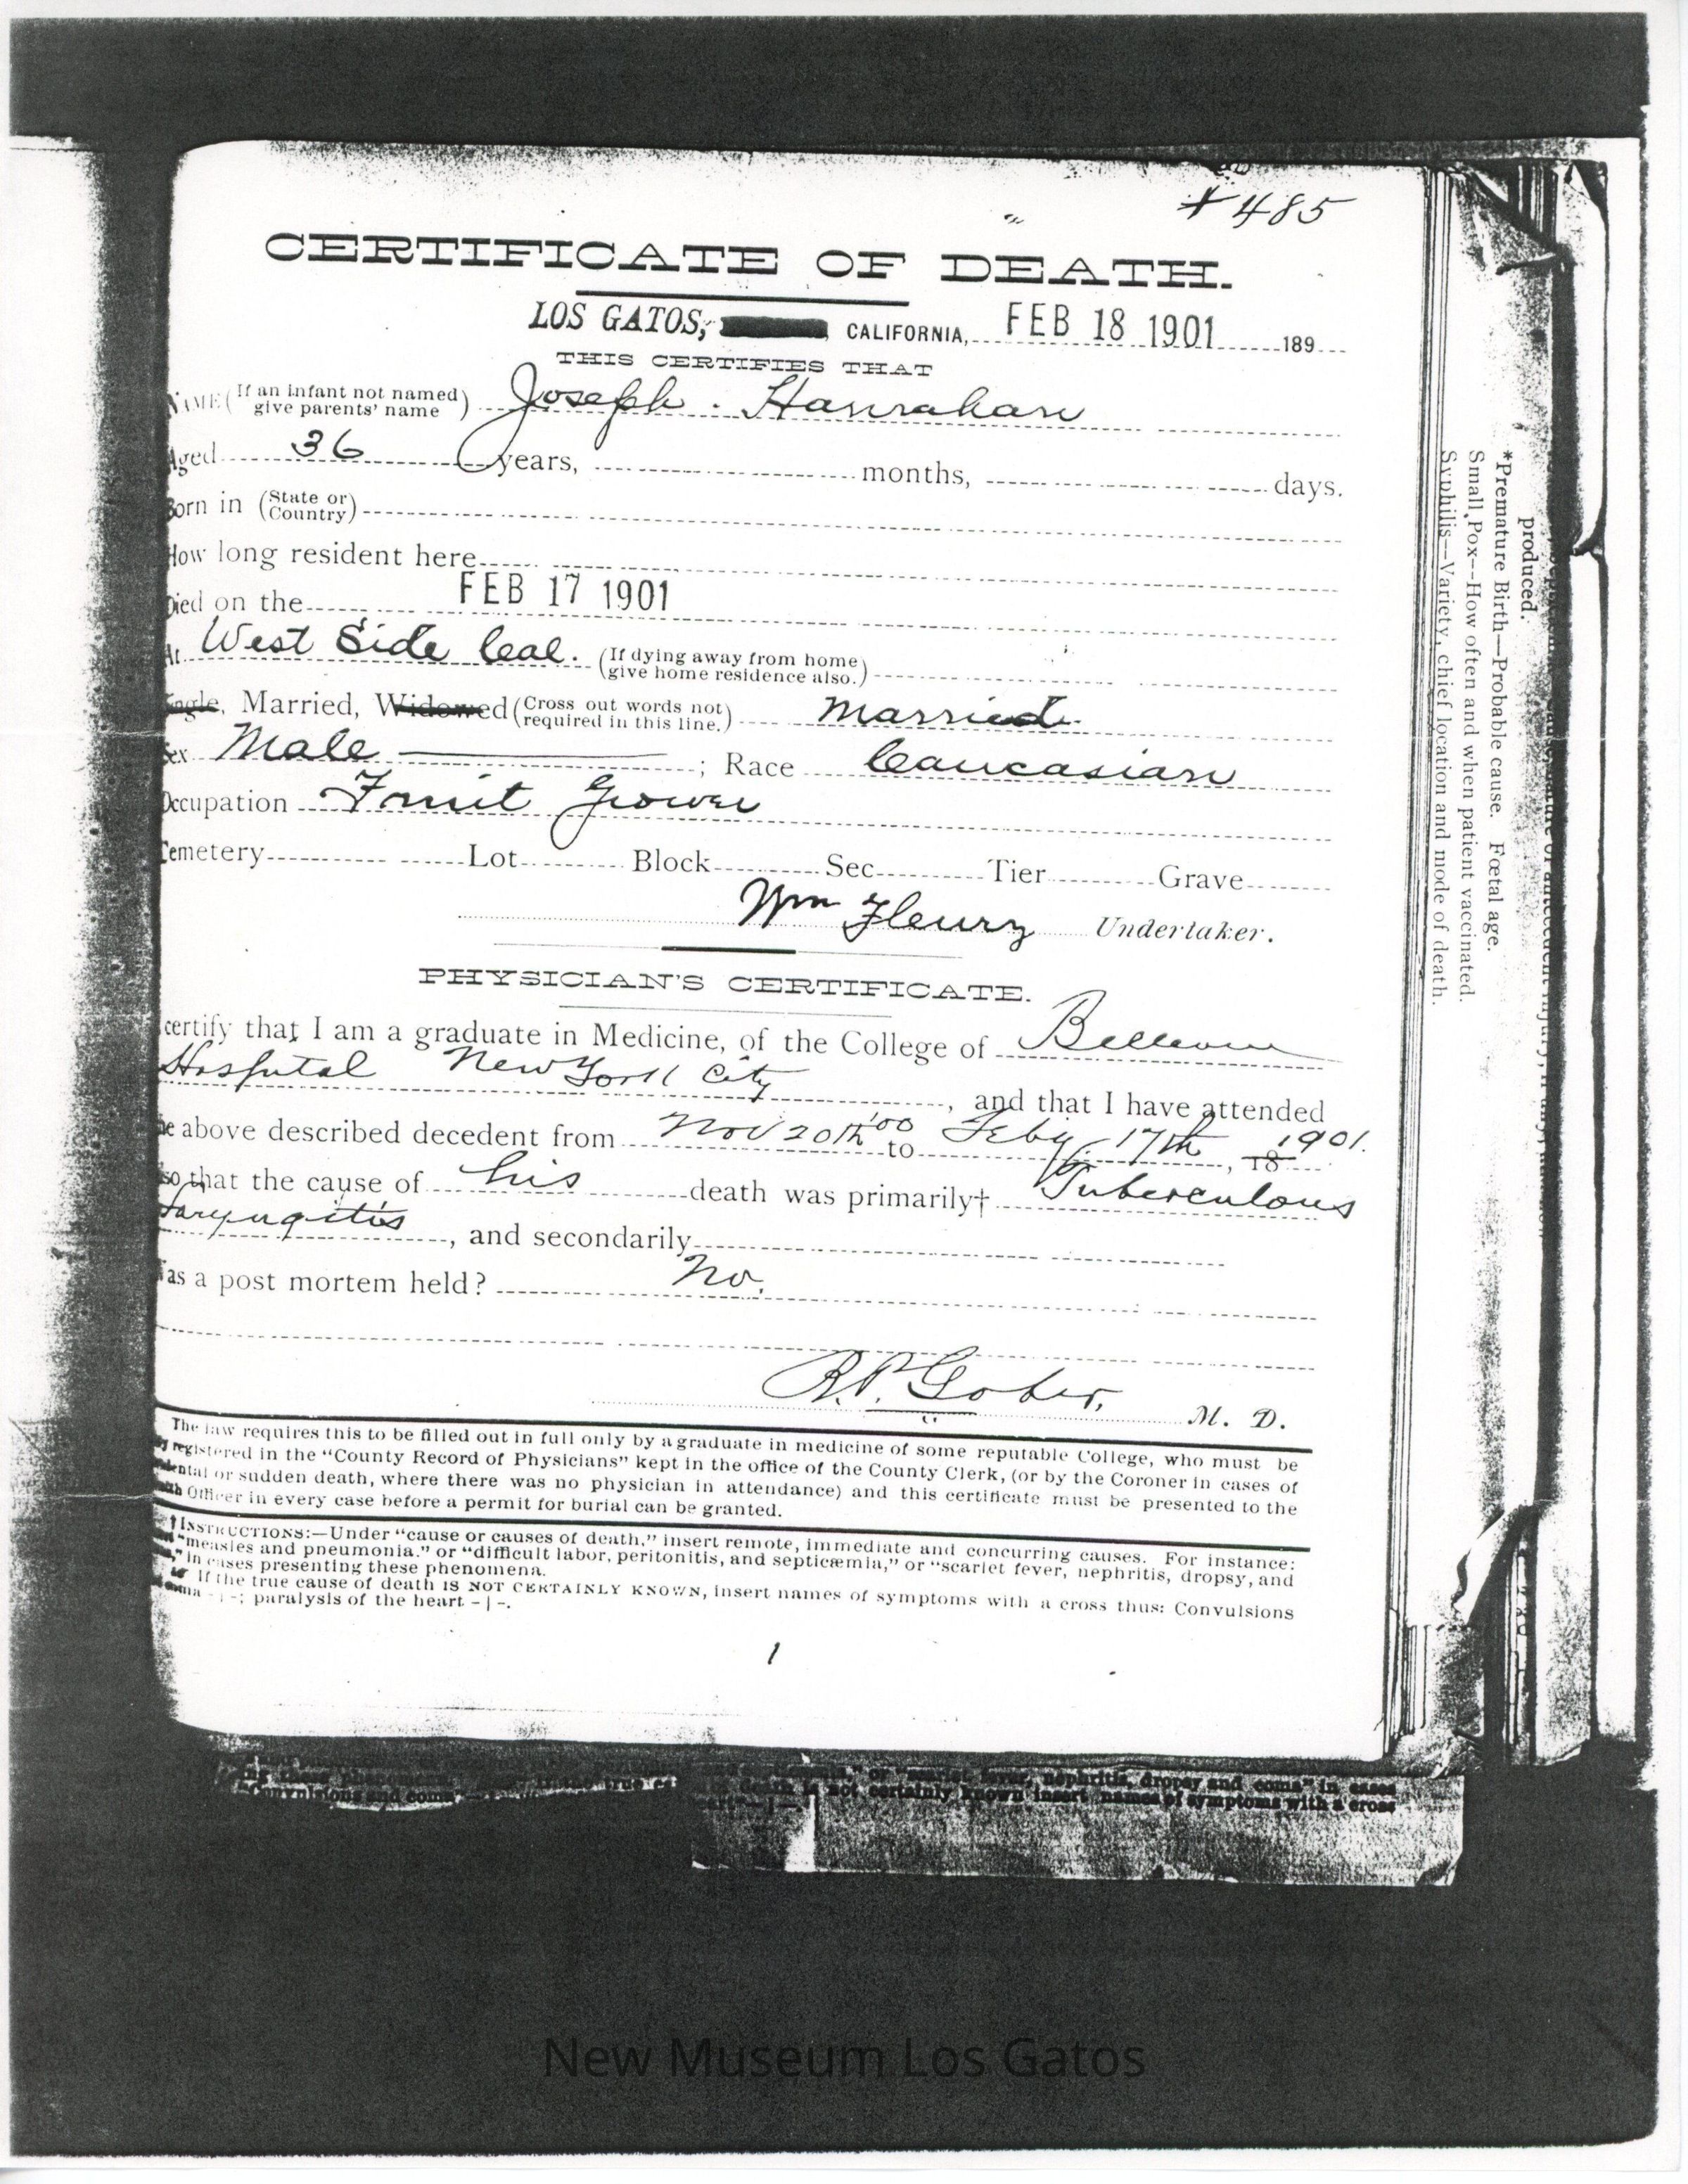 # 485
CERTIFICATE OF DEATH.
LOS GATOS, CALIFORNIA, FEB 18 1901 189
THIS CERTIFIES THAT
NAME (If an infant not named give parents' name) Joseph . Hanrahan
Aged 36 years, months, days.
Born in (State or Country)
How long resident here
Died on the FEB 17 1901
At West Side Cal. (If dying away from home give home residence also.)
Single, Married, Widowed (Cross out words not required in this line.) Married.
Sex Male ; Race Caucasian
Occupation Fruit Grower
Cemetery Lot Block Sec Tier Grave
Wm Fleury Undertaker.
PHYSICIAN'S CERTIFICATE.
certify that I am a graduate in Medicine, of the College of Bellevue
Hospital New York City , and that I have attended
the above described decedent from Nov 20th '00 to Feby 17th , 18 1901.
so that the cause of his death was primarily† Tuberculous
Laryngitis , and secondarily
Was a post mortem held? No.
R.P. Gober, M. D.
The law requires this to be filled out in full only by a graduate in medicine of some reputable College, who must be
registered in the "County Record of Physicians" kept in the office of the County Clerk, (or by the Coroner in cases of
or sudden death, where there was no physician in attendance) and this certificate must be presented to the
Officer in every case before a permit for burial can be granted.
†INSTRUCTIONS:—Under "cause or causes of death," insert remote, immediate and concurring causes. For instance:
"measles and pneumonia." or "difficult labor, peritonitis, and septicæmia," or "scarlet fever, nephritis, dropsy, and
" in cases presenting these phenomena.
If the true cause of death IS NOT CERTAINLY KNOWN, insert names of symptoms with a cross thus: Convulsions
-|-; paralysis of the heart -|-.
produced.
*Premature Birth—Probable cause. Fœtal age.
Small Pox—How often and when patient vaccinated.
Syphilis—Variety, chief location and mode of death.
or "scarlet fever, nephritis, dropsy and coma" in cases
Convulsions and coma death is not certainly known insert names of symptoms with a cross
New Museum Los Gatos